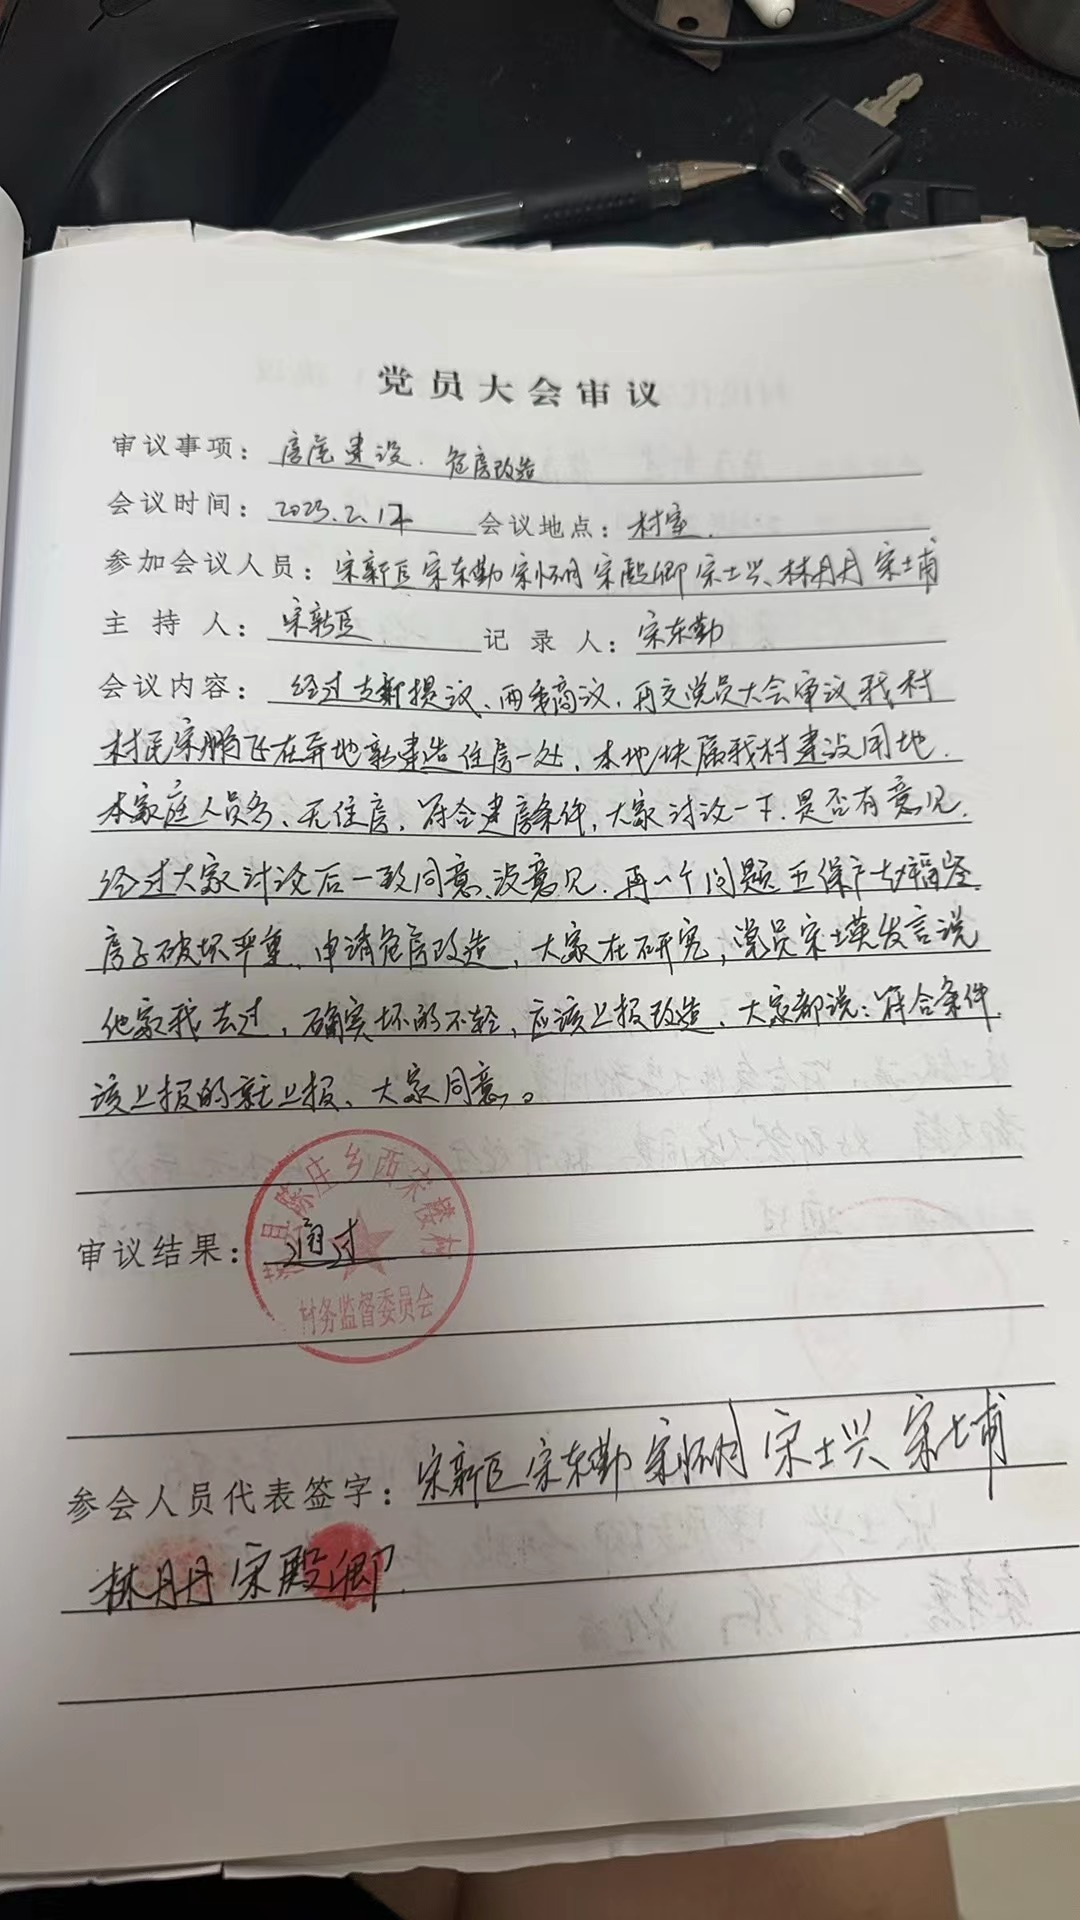 党员大会审议
审议事项：房屋建设．危房改造
会议时间：2025.2.17 会议地点：村室．
参加会议人员：宋新臣 宋东勤 宋怀明 宋殿卿 宋士兴、林丹丹 宋士甫
主持人：宋新臣 记录人：宋东勤
会议内容：经过支部提议、两委商议，再交党员大会审议我村
村民宋鹏飞在弃地新建造住房一处，本地块属我村建设用地．
本家庭人员多、无住房，符合建房条件，大家讨议一下．是否有意见．
经过大家讨论后一致同意、没意见．再一个问题 五保户
房子破坏严重，申请危房改造，大家在研究，党员宋士英发言说
他家我去过，确实坏的不轻，应该上报改造、大家都说：符合条件．
该上报的就上报、大家同意。
县陈庄乡西宋楼村
审议结果：通过
村务监督委员会
参会人员代表签字：宋新臣 宋东勤 宋怀明 宋士兴 宋士甫
林丹丹 宋殿卿．